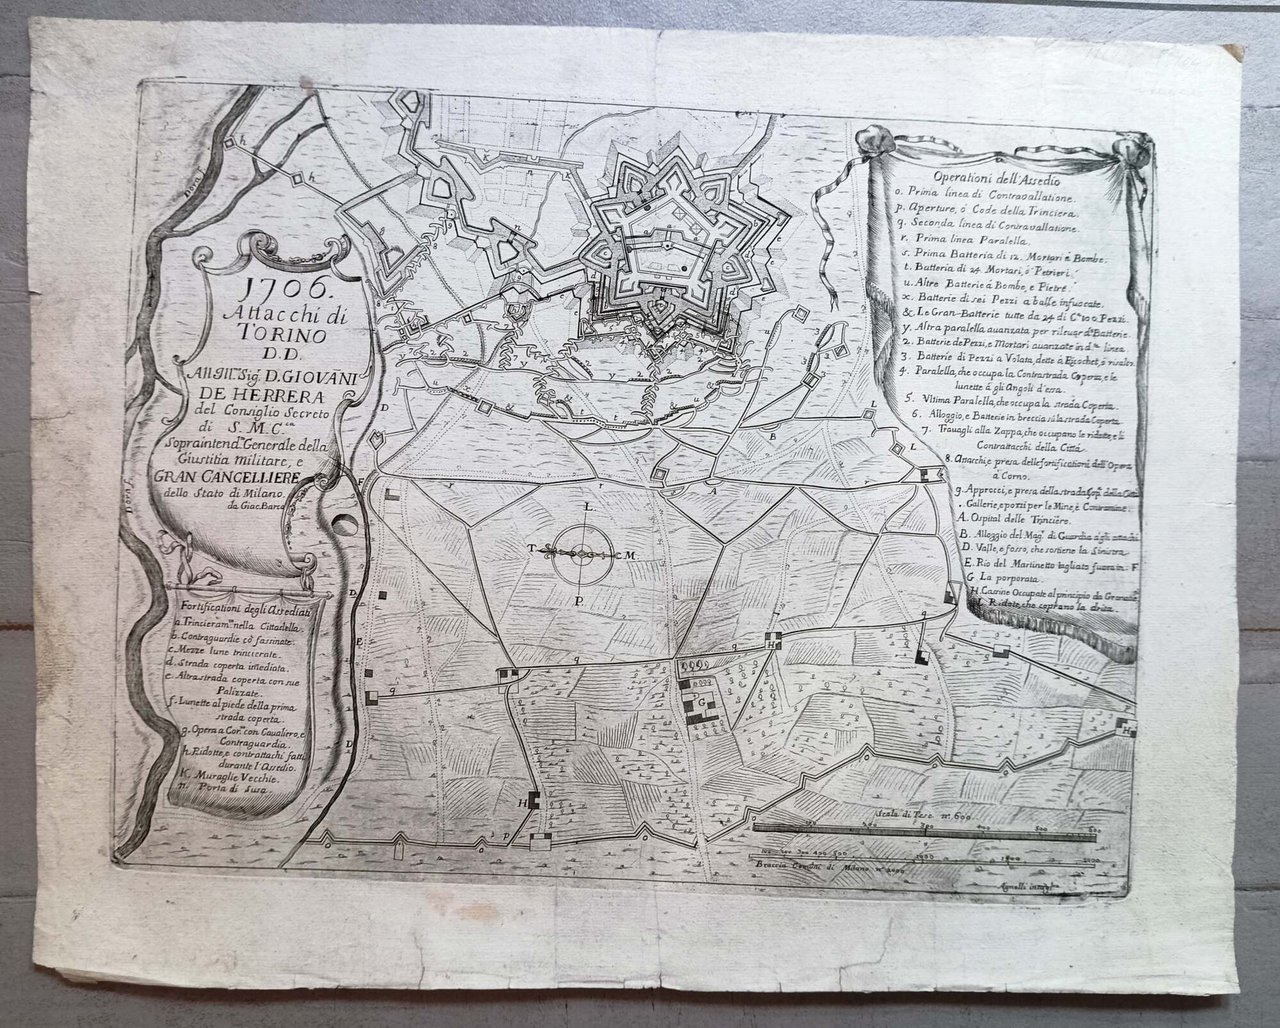 1706.
Attacchi di
TORINO
D.D.
All Ill.mo Sig. D. GIOVANI
DE HERRERA
del Consiglio Secreto
di S. M. C.ca
Sopraintend.te Generale della
Giustitia militare, e
GRAN CANCELLIERE
dello Stato di Milano.
da Giac. Barca
Fortificationi degli Assediati
a. Trincieram.ti nella Cittadella.
b. Contraguardie cō fassinate.
c. Mezze lune trincierate.
d. Strada coperta imediata.
e. Altra strada coperta con sue
Palizzate.
f. Lunette al piede della prima
strada coperta.
g. Opera a Cor.o con Caualiero, e
Contraguardia.
h. Ridotte, e contrattachi fatti
durante l'Assedio.
K. Muraglie Vecchie.
n. Porta di Susa.
Operationi dell'Assedio
o. Prima linea di Contravallatione.
p. Aperture, ò Code della Trinciera.
q. Seconda linea di Contravallatione.
r. Prima linea Paralella.
s. Prima Batteria di 12. Mortari à Bombe.
t. Batteria di 24 Mortari, ò Petrieri.
u. Altre Batterie à Bombe, e Pietre.
x. Batterie di sei Pezzi a balle infuocate.
&. Le Gran Batterie tutte da 24 di C.a 100. Pezzi.
y. Altra paralella auanzata per rileuar d.e Batterie.
2. Batterie de Pezzi, e Mortari auanzate in d.ta linea.
3. Batterie di Pezzi a Volata, dette à Ricochet, ò risalto.
4. Paralella, che occupa la Contrastrada Coperta, e le
lunette á gli Angoli d'essa.
5. Vltima Paralella, che occupa la strada Coperta.
6. Alloggio, e Batterie in breccia sù la strada Coperta.
7. Trauagli alla Zappa, che occupano le ridotte, e li
Contrattacchi della Città.
8. Attacchi, e presa delle fortificationi dell'Opera
à Corno.
9. Approcci, e presa della strada Cop.ta della Città
. Gallerie, e pozzi per le Mine, e Contramine.
A. Ospital delle Trinciere.
B. Alloggio del Mag.r di Guardia agli attachi
D. Valle, e fosso, che sostiene la Sinistra.
E. Rio del Martinetto tagliato fuora in F
G La porporata.
H. Cassine Occupate al principio da Granatie.
Ridote, che coprano la drita.
Dora f.
Dora f.
L
T
M
P
Scala di Tese n.o 600.
Braccia Comuni di Milano n.o 2000
Agnelli intag.